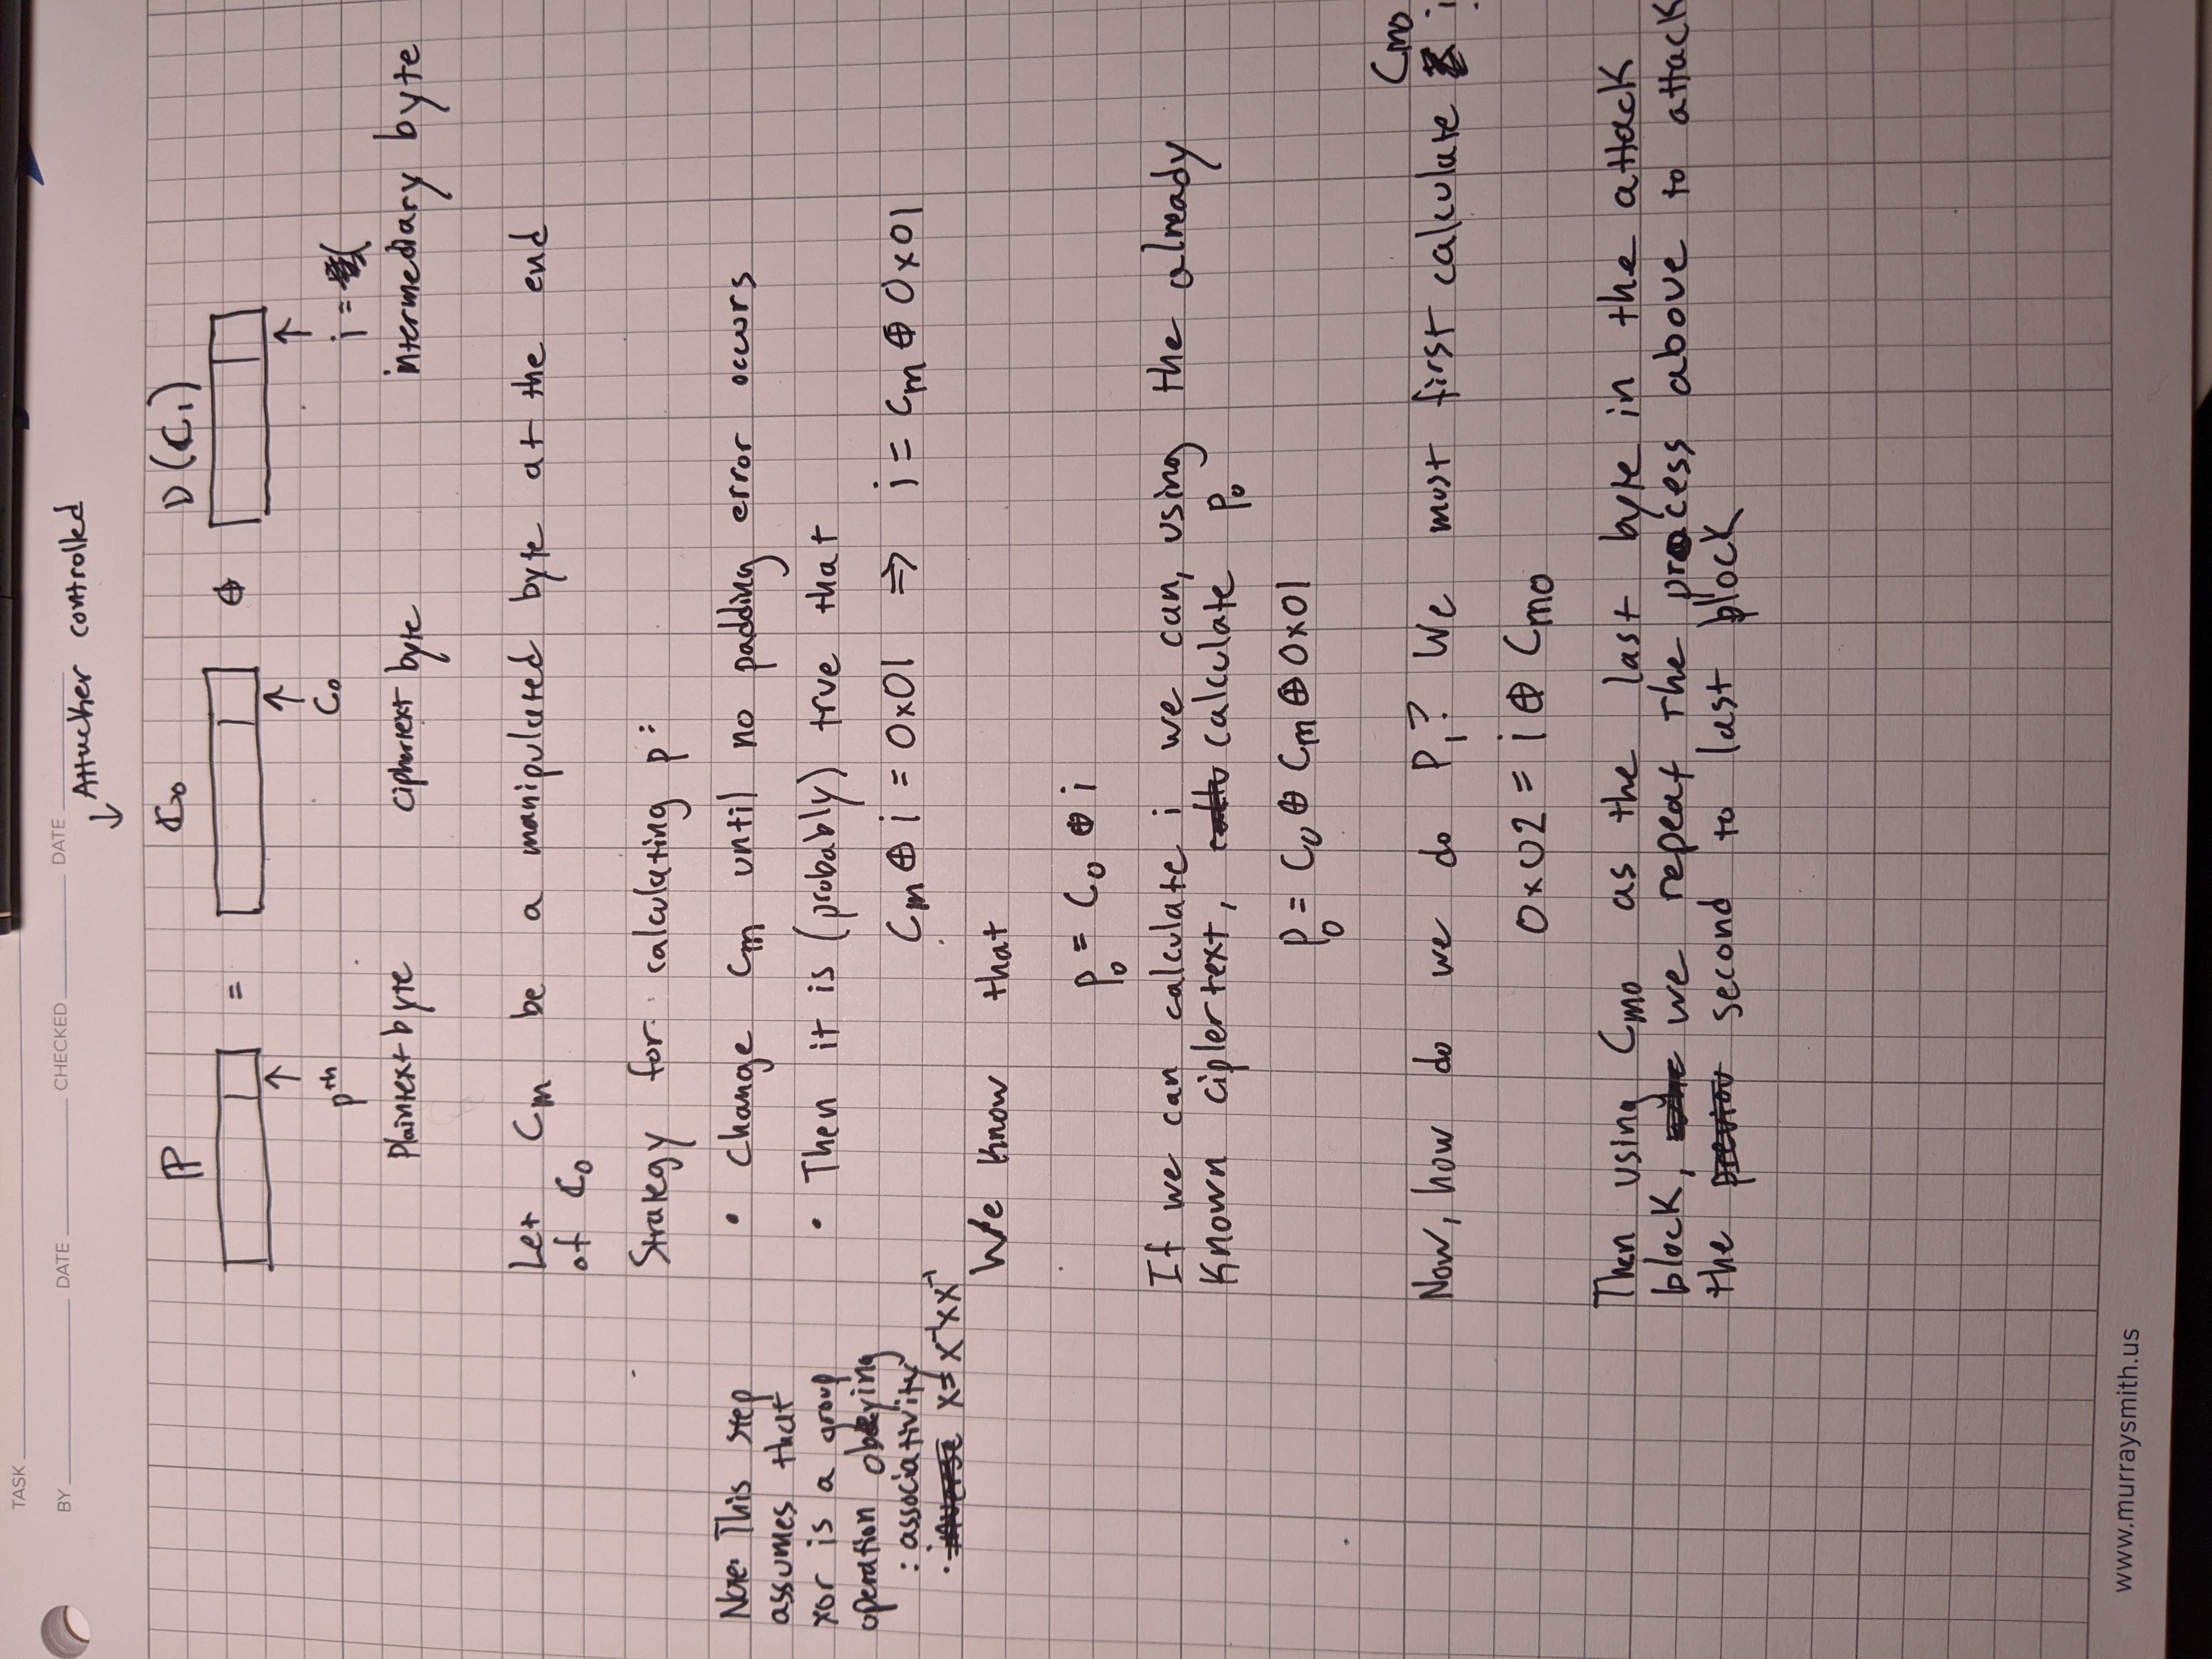 TASK
BY DATE CHECKED DATE
↓ Attacker controlled
ℙ ℂ₀ D(ℂ₁)
= ⊕
↑ ↑ ↑
pᵗʰ C₀ i =
Plaintext byte ciphertext byte intermediary byte
Let Cm be a manipulated byte at the end
of ℂ₀
Strategy for calculating p:
• Change Cm until no padding error occurs
• Then it is (probably) true that
Cm ⊕ i = 0x01 ⇒ i = Cm ⊕ 0x01
Note: This step
assumes that
xor is a group
operation obeying
: associativity
· inverse x = x⁻¹xx⁻¹
We know that
p₀ = C₀ ⊕ i
If we can calculate i we can, using the already
known ciplertext, calculate p₀
p₀ = C₀ ⊕ Cm ⊕ 0x01
Cmo
Now, how do we do P₁? We must first calculate i
0x02 = i ⊕ Cmo
Then using Cmo as the last byte in the attack
block, we repeat the process above to attack
the previou second to last block
www.murraysmith.us